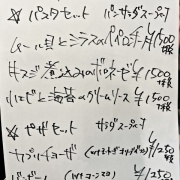 ☆ パスタセット パン サラダ スープ付
ムール貝とシラスのペペロンチーノ ¥1500 税抜
牛スジ煮込みのボロネーゼ ¥1500 税抜
小エビと海苔のクリームソース ¥1500 税抜
☆ ピザセット サラダ スープ付
カプリチョーザ ¥1250
¥1250